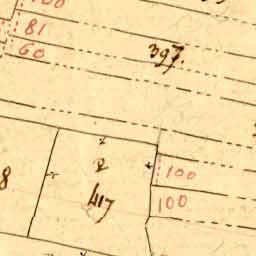 100
81
60
397.
8
2
417
100
100